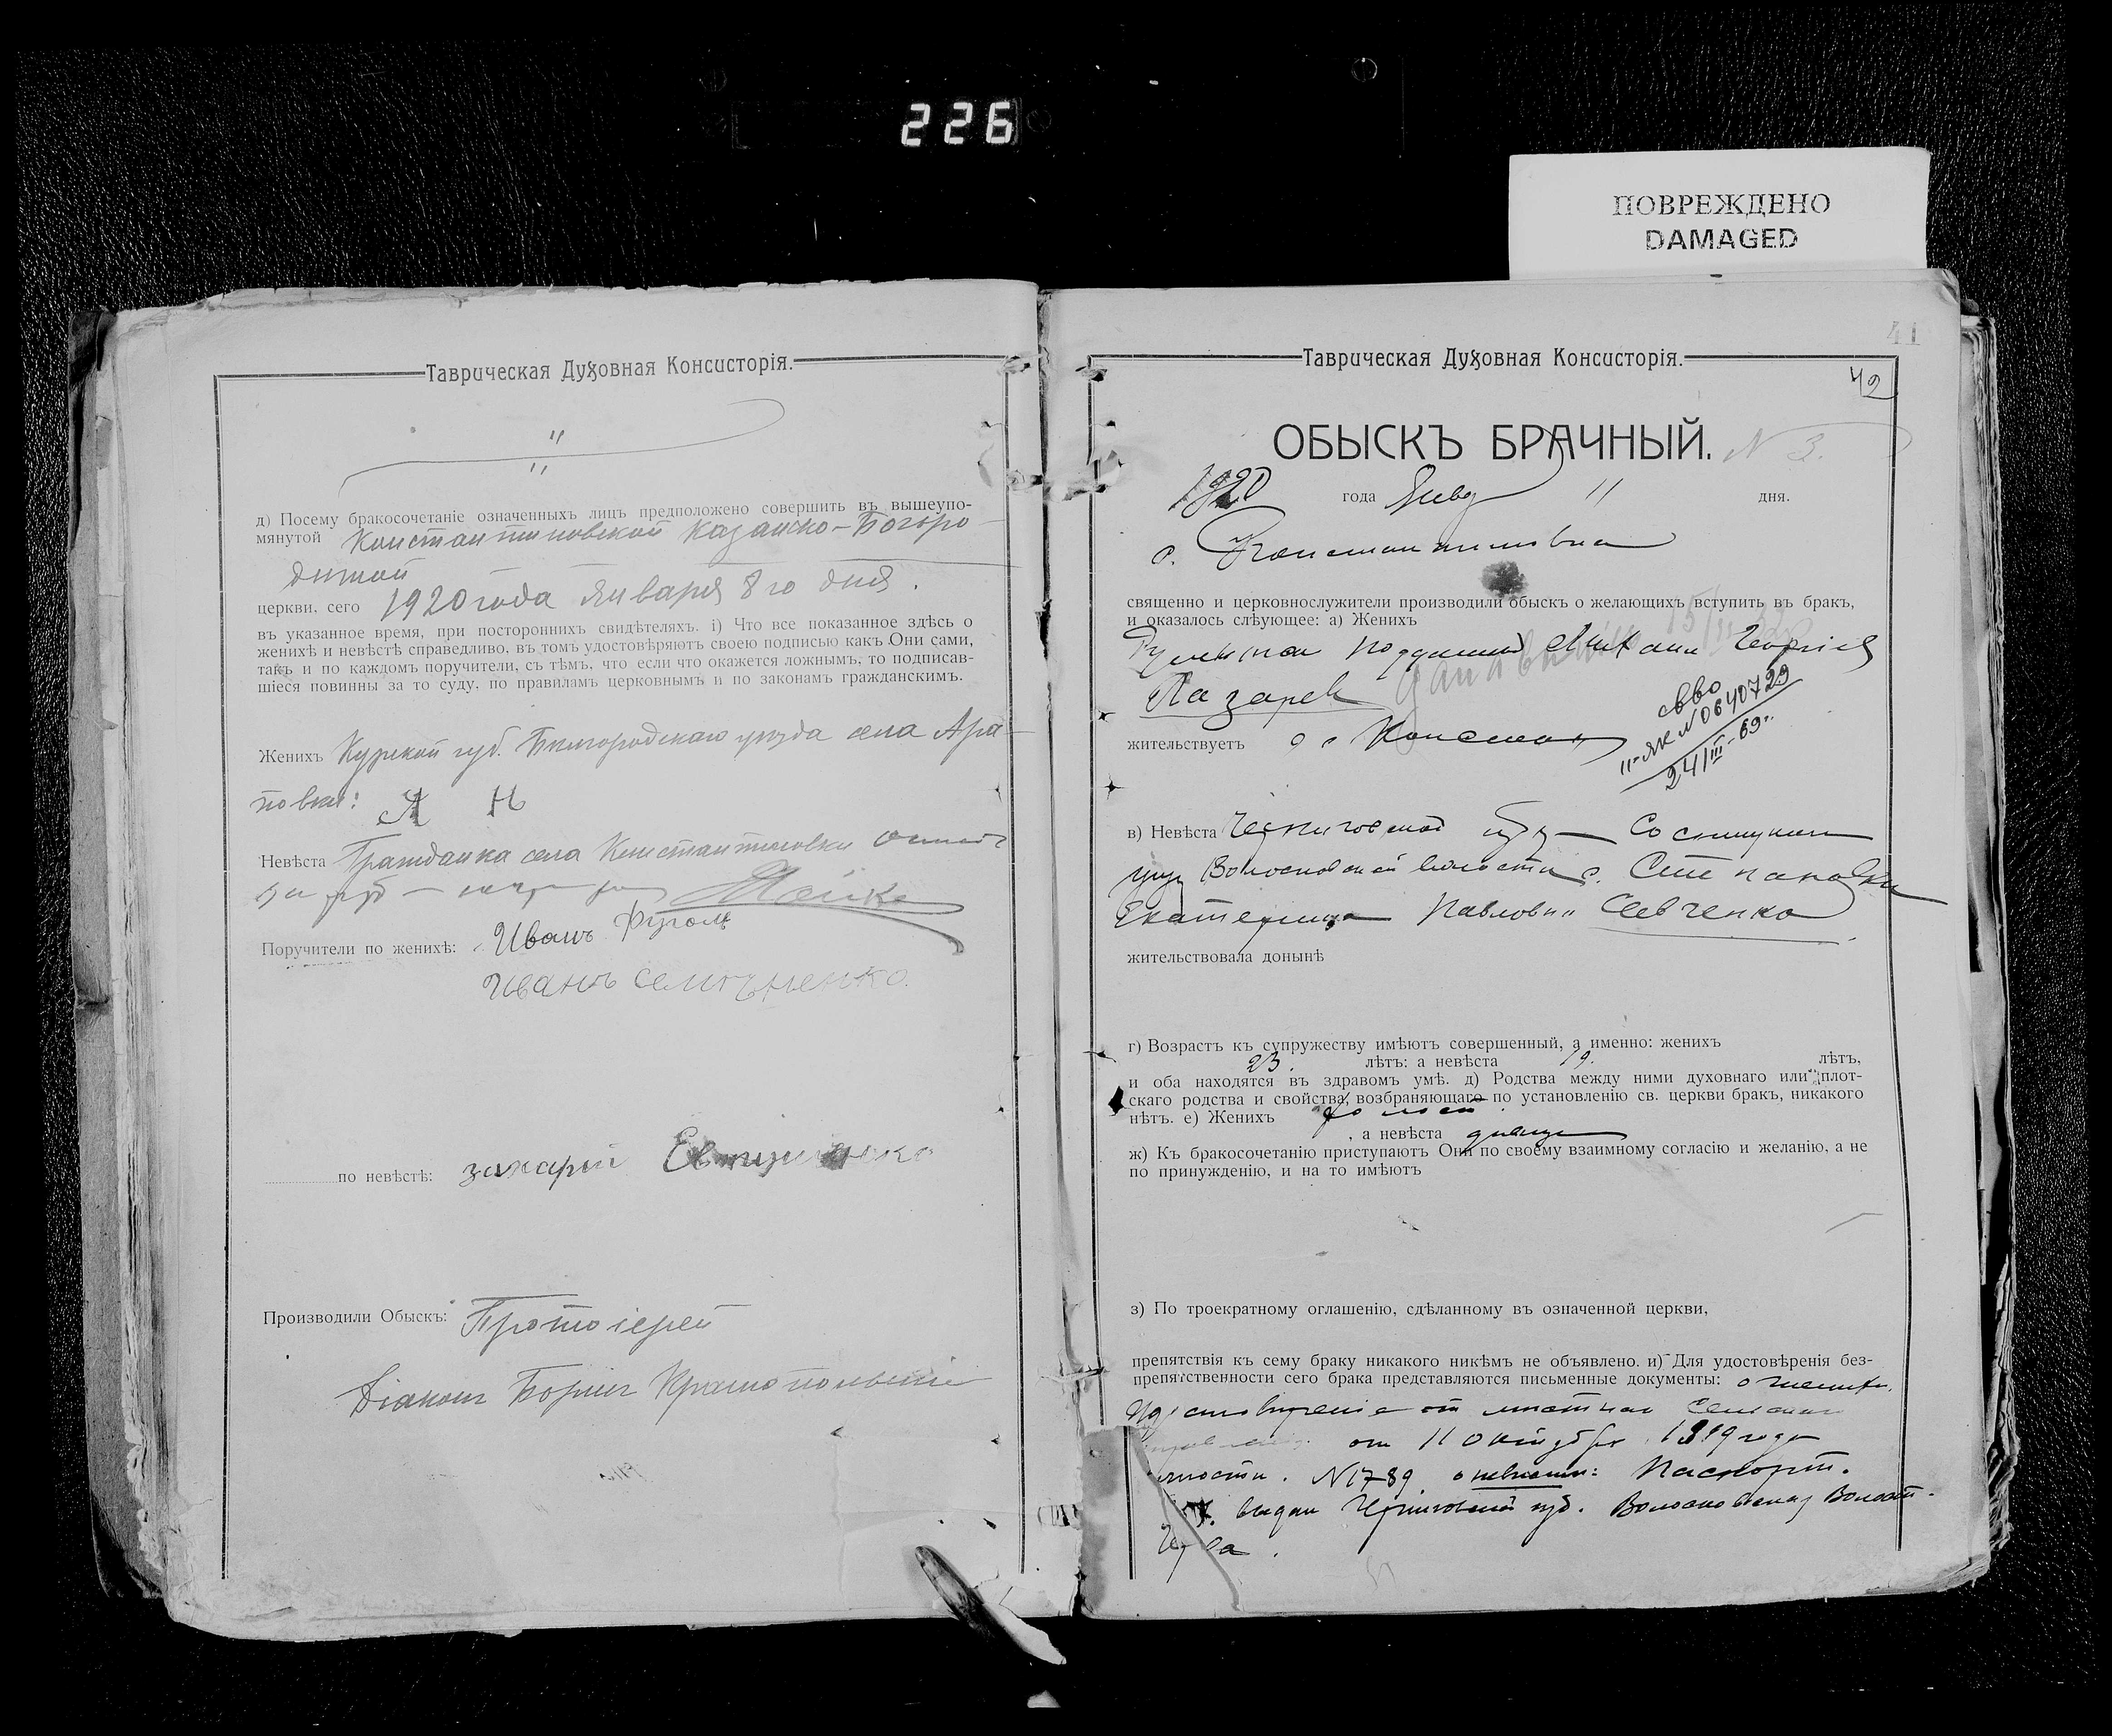 226
ПОВРЕЖДЕНО
DAMAGED
Таврическая Духовная Консисторія.
д) Посему бракосочетаніе означенныхъ лицъ предположено совершить въ вышеупо-
мянутой Константиновской Казанско-Богоро
дичной
церкви. сего 1920 года Января 8 го дня.
въ указанное время, при постороннихъ свидѣтеляхъ. і) Что все показанное здѣсь о
женихѣ и невѣстѣ справедливо. въ томъ удостовѣряютъ своею подписью какъ Они сами,
такъ и по каждомъ поручители, съ тѣмъ, что если что окажется ложнымъ, то подписав-
шіеся повинны за то суду, по правиламъ церковнымъ и по законамъ гражданскимъ.
Женихъ Курской губ. Белгородскаго уезда села Ара
повки: А Н
Невѣста Гражданка села Константиновки
Поручители по женихѣ: Иванъ
Иванъ
по невѣстѣ: захарій Евтушенко
Производили Обыскъ: Протоіерей
Діаконъ Борисъ
Таврическая Духовная Консисторія.
41
42
ОБЫСКЪ БРАЧНЫЙ. N 3.
1920 года Янва 11 дня.
с. Константиновка
священно и церковнослужители производили обыскъ о желающихъ вступить въ бракъ,
и оказалось слѣующее: а) Женихъ
15/II
подданный Георгіев
Лазарев
свво
II-ЯК N 0640729
24/III-69г.
жительствуетъ с Констан
в) Невѣста Черниговской губ Сосницкаго
уез Волосковской волости с. Степановки
Екатерина Павловн Севченко
жительствовала донынѣ
г) Возрастъ къ супружеству имѣютъ совершенный, а именно: женихъ
23. лѣтъ: а невѣста 19. лѣтъ,
и оба находятся въ здравомъ умѣ. д) Родства между ними духовнаго или плот-
скаго родства и свойства, возбраняющаго по установленію св. церкви бракъ, никакого
нѣтъ. е) Женихъ холост.
, а невѣста девица
ж) Къ бракосочетанію приступаютъ Они по своему взаимному согласію и желанію, а не
по принужденію, и на то имѣютъ
з) По троекратному оглашенію, сдѣланному въ означенной церкви,
препятствія къ сему браку никакого никѣмъ не объявлено. и) Для удостовѣренія без-
препятственности сего брака представляются письменные документы: о женихе.
Удостоверение от местнаго Сельскаго
от 11 октября 1919 года
N 1789 о невесте: Паспорт.
выдан Черниговской губ. Волосковскаго Волост.